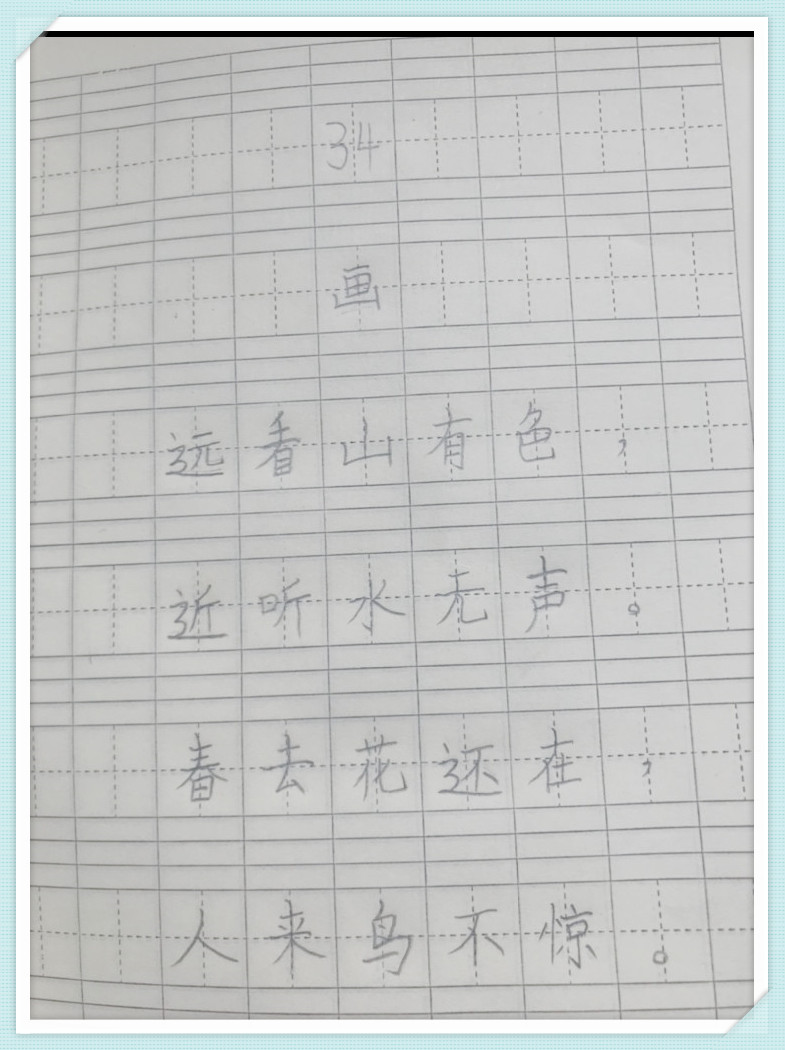 34
画
远看山有色，
近听水无声。
春去花还在，
人来鸟不惊。